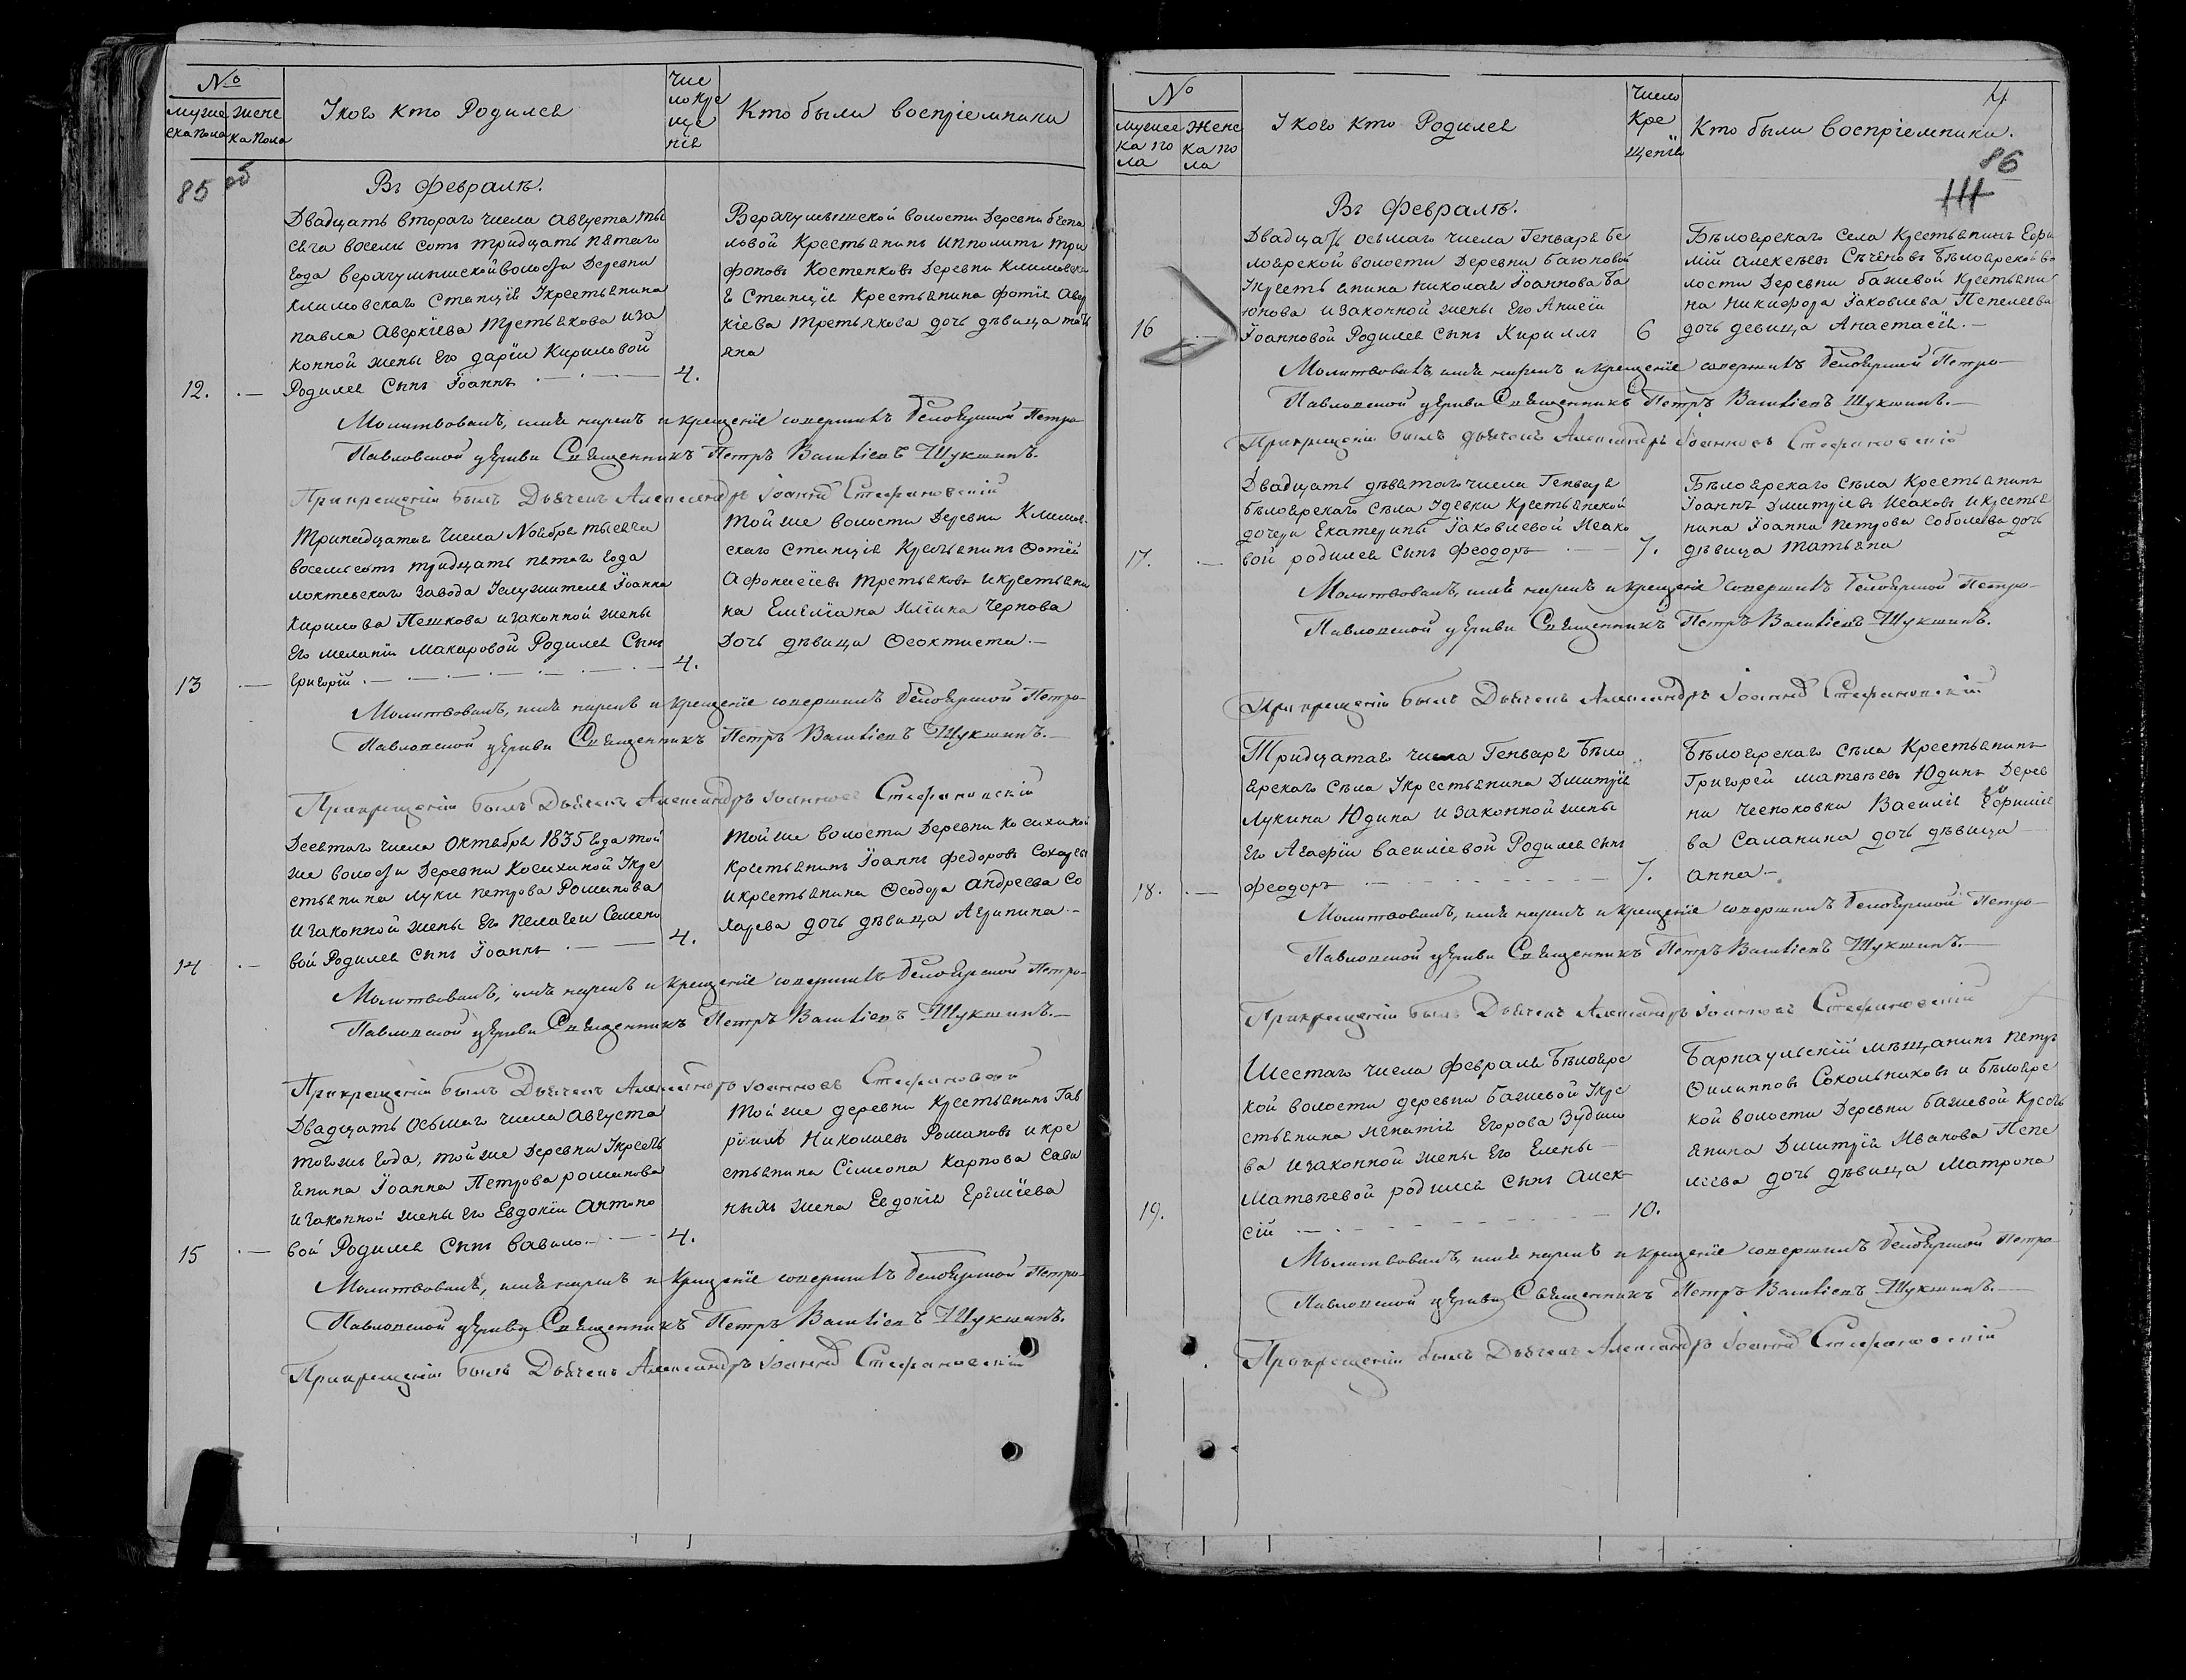 №
мужескапола
женекапола
У кого кто Родился
Число крещенія
Кто были воспріемники
85 об
Въ Февралѣ.
Двадцать втораго числа Августа ты
сяча восемь сотъ тридцать пятаго
года верхчумышской волости Деревни
Климовскаго Станція Укрестьянина
Павла Аверкіева Третьякова иза
конной жены Его Даріи Кириловой
12. Родился Сынъ Іоаннъ 4.
Верхчумышской волости Деревни беспа
ловой Крестьянинъ Ипполитъ Три
фоновъ Костенковъ Деревни Климовска
го Станція Крестьянина Фотія Авер
кіева Третьякова дочь дѣвица тать
яна
Молитвовалъ, имя нарекъ и крещеніе совершилъ Белоярской Петро-
Павловской церкви Священникъ Петръ Васильевъ Шукшинъ.
Прикрещеніи былъ Дьячекъ Александръ Іоанновъ Стефановскій
Тринадцатаго Числа Ноября тысяча
восемьсотъ тридцать пятаго года
локтевскаго завода Услужителя Іоанна
Кирилова Пешкова изаконной жены
Его Меланіи Макаровой Родился Сынъ
13 Григорій 4.
Тойже волости Деревни Климов-
скаго Станція Крестьянинъ Фотій
Афонасіевъ Третьяковъ икрестьяни
на Емеліана Иліина Чернова
Дочь дѣвица Феоктиста.
Молитвовалъ, имя нарекъ и крещеніе совершилъ Белоярской Петро-
Павловской церкви Священникъ Петръ Васильевъ Шукшинъ.
Прикрещеніи былъ Дьячекъ Александръ Іоанновъ Стефановскій
Десятаго числа Октября 1835 года той
же волости Деревни Косихиной Укре
стьянина луки петрова Романова
изаконной жены Его Пелагеи Семено
14 вой Родился Сынъ Іоаннъ 4.
Тойже волости Деревни Косихиной
Крестьянинъ Іоаннъ Федоровъ Сохаревъ
икрестьянина Феодора Андреева Со
харева дочь дѣвица Агрипина.
Молитвовалъ, имя нарекъ и крещеніе совершилъ Белоярской Петро-
Павловской церкви Священникъ Петръ Васильевъ Шукшинъ.
Прикрещеніи былъ Дьячекъ Александръ Іоанновъ Стефановскій
Двадцать Осьмаго числа Августа
тогожъ года, тойже Деревни Укресть
янина Іоанна Петрова романова
изаконной жены Его Евдокіи Антоно
15 вой Родился Сынъ Вавило 4.
Тойже деревни Крестьянинъ Гав
ріилъ Николаевъ Романовъ и кре
стьянина Сімеона Карпова Сави
ныхъ жена Евдокія Ереміева
Молитвовалъ, имя нарекъ и крещеніе совершилъ Белоярской Петро-
Павловской церкви Священникъ Петръ Васильевъ Шукшинъ.
Прикрещеніи былъ Дьячекъ Александръ Іоанновъ Стефановскій
№
Мужескаго пола
Женскаго пола
У кого кто Родился
Число Крещенія
Кто были воспріемники.
4
86
Въ Февралѣ.
Двадцать осьмаго числа Генваря Бе
лоярской волости Деревни Баюновой
Укрестьянина Николая Іоаннова Ба
юнова изаконной жены Его Анисіи
16 Іоанновой Родился Сынъ Кириллъ 6
Бѣлоярскаго Села Крестьянинъ Ефи
мій Алексѣевъ Сѣченовъ Бѣлоярской во
лости Деревни бажевой Крестьяни
на Никифора Іаковлева Пепелеева
дочь девица Анастасія.
Молитвовалъ, имя нарекъ и крещеніе совершилъ Белоярской Петро-
Павловской церкви Священникъ Петръ Васильевъ Шукшинъ.
Прикрещеніи былъ дьячекъ Александръ Іоанновъ Стефановскій
Двадцать дѣвятаго числа Генваря
Бѣлоярскаго Сѣла Удевки Крестьянской
дочери Екатерины Іаковлевой Исако
17. вой родился сынъ Феодоръ 7.
Бѣлоярскаго Сѣла Крестьянинъ
Іоаннъ Дмитріевъ Исаковъ икрестья
нина Іоанна Петрова Соболева дочь
дѣвица татьяна
Молитвовалъ, имя нарекъ и крещеніе совершилъ Белоярской Петро-
Павловской церкви Священникъ Петръ Васильевъ Шукшинъ.
При крещеніи былъ Дьячекъ Александръ Іоанновъ Стефановскій
Тридцатаго числа Генваря Бѣло
ярскаго Сѣла Укрестьянина Дмитрія
Лукина Юдина изаконной жены
Его Агафіи Василіевой Родился сынъ
18. феодоръ 7.
Бѣлоярскаго Сѣла Крестьянинъ
Григорей Матвѣевъ Юдинъ Дерев
ни Чесноковки Василія Ефиміе
ва Саланина дочь дѣвица
анна
Молитвовалъ, имя нарекъ и крещеніе совершилъ Белоярской Петро-
Павловской церкви Священникъ Петръ Васильевъ Шукшинъ.
Прикрещеніи былъ Дьячекъ Александръ Іоанновъ Стефановскій
Шестаго числа февраля Бѣлоярс
кой волости деревни Бажевой Укре
стьянина Игнатія Егорова Зудило
ва изаконной жены Его Елены
Матвѣевой родился сынъ Алек-
19. сій 10.
Барнаульскій мѣщанинъ Петръ
Филипповъ Сокольниковъ и Бѣлоярс
кой волости Деревни Бажевой Кресть
янина Дмитрія Иванова Пепе
леева дочь дѣвица Матрона
Молитвовалъ, имя нарекъ и крещеніе совершилъ Белоярской Петро-
Павловской церкви Священникъ Петръ Васильевъ Шукшинъ.
Прикрещеніи былъ Дьячекъ Александръ Іоанновъ Стефановскій